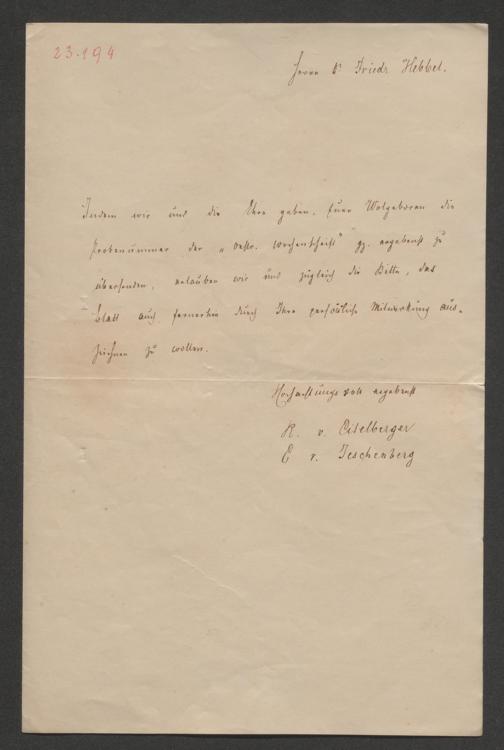 23.194
Herrn Dr Friedr Hebbel.
Indem wir uns die Ehre geben, Euer Wolgeboren die
Probenummer der „oestr. Wochenschrift" gz. ergebenst zu
übersenden, erlauben wir uns zugleich die Bitte, das
Blatt auch fernerhin durch Ihre persönliche Mitwirkung aus-
zeichnen zu wollen.
Hochachtungsvoll ergebenst
R. v. Eitelberger
E v. Teschenberg